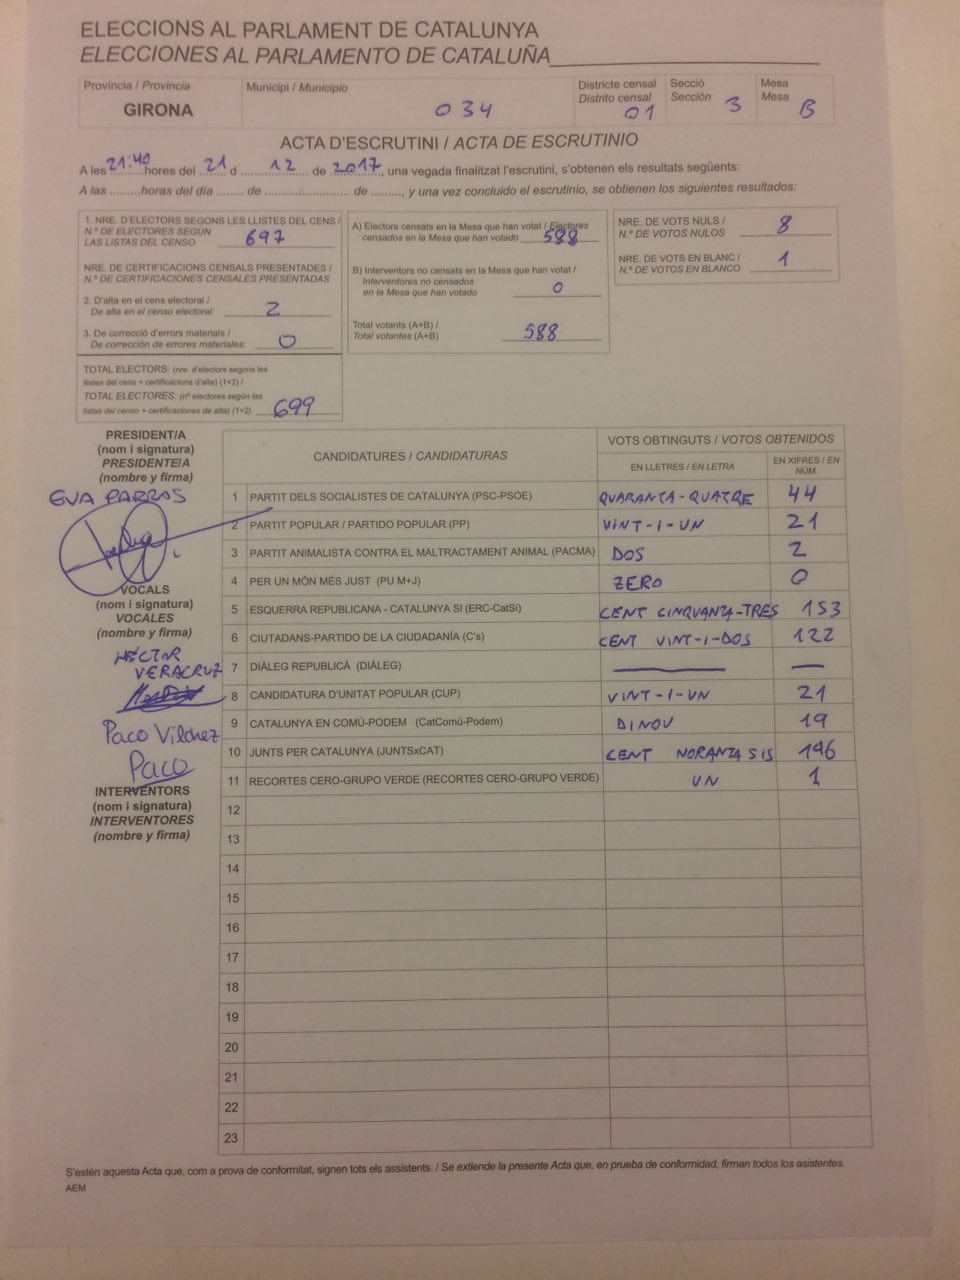 ELECCIONS AL PARLAMENT DE CATALUNYA
ELECCIONES AL PARLAMENTO DE CATALUÑA
Província / Provincia
GIRONA
Municipi / Municipio
034
Districte censal
Distrito censal
01
Secció
Sección
3
Mesa
Mesa
B
ACTA D'ESCRUTINI / ACTA DE ESCRUTINIO
A les 21:40 hores del 21 d 12 de 2017, una vegada finalitzat l'escrutini, s'obtenen els resultats següents:
A las ......... horas del día ....... de ............ de ........, y una vez concluido el escrutinio, se obtienen los siguientes resultados:
1. NRE. D'ELECTORS SEGONS LES LLISTES DEL CENS /
N.º DE ELECTORES SEGÚN
LAS LISTAS DEL CENSO 697
NRE. DE CERTIFICACIONS CENSALS PRESENTADES /
N.º DE CERTIFICACIONES CENSALES PRESENTADAS
2. D'alta en el cens electoral /
De alta en el censo electoral: 2
3. De correcció d'errors materials /
De corrección de errores materiales: 0
TOTAL ELECTORS: (nre. d'electors segons les
llistes del cens + certificacions d'alta) (1+2) /
TOTAL ELECTORES: (nº electores según las
listas del censo + certificaciones de alta) (1+2) 699
A) Electors censats en la Mesa que han votat / Electores
censados en la Mesa que han votado 588
B) Interventors no censats en la Mesa que han votat /
Interventores no censados
en la Mesa que han votado 0
Total votants (A+B) /
Total votantes (A+B) 588
NRE. DE VOTS NULS /
N.º DE VOTOS NULOS 8
NRE. DE VOTS EN BLANC /
N.º DE VOTOS EN BLANCO 1
PRESIDENT/A
(nom i signatura)
PRESIDENTE/A
(nombre y firma)
EVA PARROS
VOCALS
(nom i signatura)
VOCALES
(nombre y firma)
HÉCTOR
VERACRUZ
Paco Vilchez
Paco
INTERVENTORS
(nom i signatura)
INTERVENTORES
(nombre y firma)
CANDIDATURES / CANDIDATURAS
VOTS OBTINGUTS / VOTOS OBTENIDOS
EN LLETRES / EN LETRA
EN XIFRES / EN NÚM.
1 PARTIT DELS SOCIALISTES DE CATALUNYA (PSC-PSOE) QUARANTA-QUATRE 44
2 PARTIT POPULAR / PARTIDO POPULAR (PP) VINT-I-UN 21
3 PARTIT ANIMALISTA CONTRA EL MALTRACTAMENT ANIMAL (PACMA) DOS 2
4 PER UN MÓN MÉS JUST (PU M+J) ZERO 0
5 ESQUERRA REPUBLICANA - CATALUNYA SI (ERC-CatSí) CENT CINQUANTA-TRES 153
6 CIUTADANS-PARTIDO DE LA CIUDADANÍA (C's) CENT VINT-I-DOS 122
7 DIÀLEG REPUBLICÀ (DIÀLEG) — —
8 CANDIDATURA D'UNITAT POPULAR (CUP) VINT-I-UN 21
9 CATALUNYA EN COMÚ-PODEM (CatComú-Podem) DINOU 19
10 JUNTS PER CATALUNYA (JUNTSxCAT) CENT NORANTA SIS 196
11 RECORTES CERO-GRUPO VERDE (RECORTES CERO-GRUPO VERDE) UN 1
12
13
14
15
16
17
18
19
20
21
22
23
S'estén aquesta Acta que, com a prova de conformitat, signen tots els assistents. / Se extiende la presente Acta que, en prueba de conformidad, firman todos los asistentes.
AEM